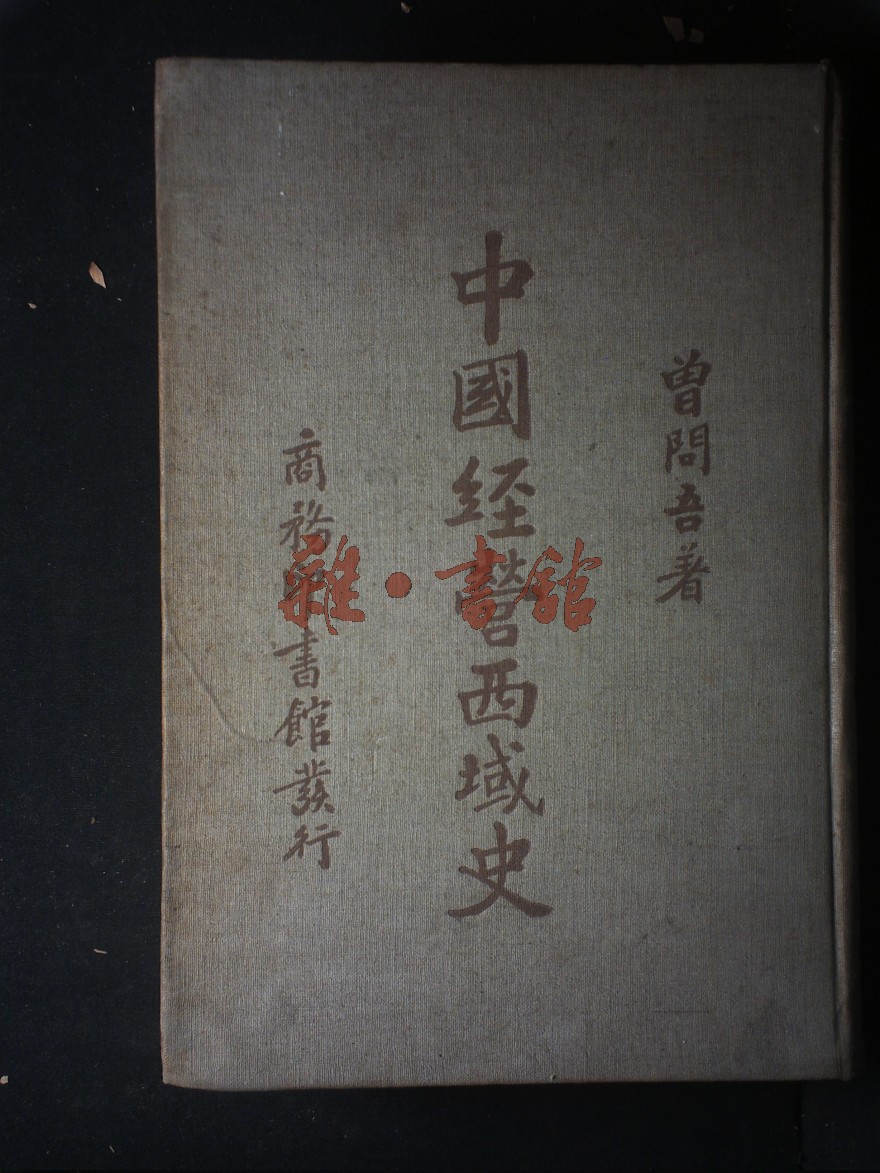 曾問吾著
中國經營西域史
商務印書館發行
雜·書館